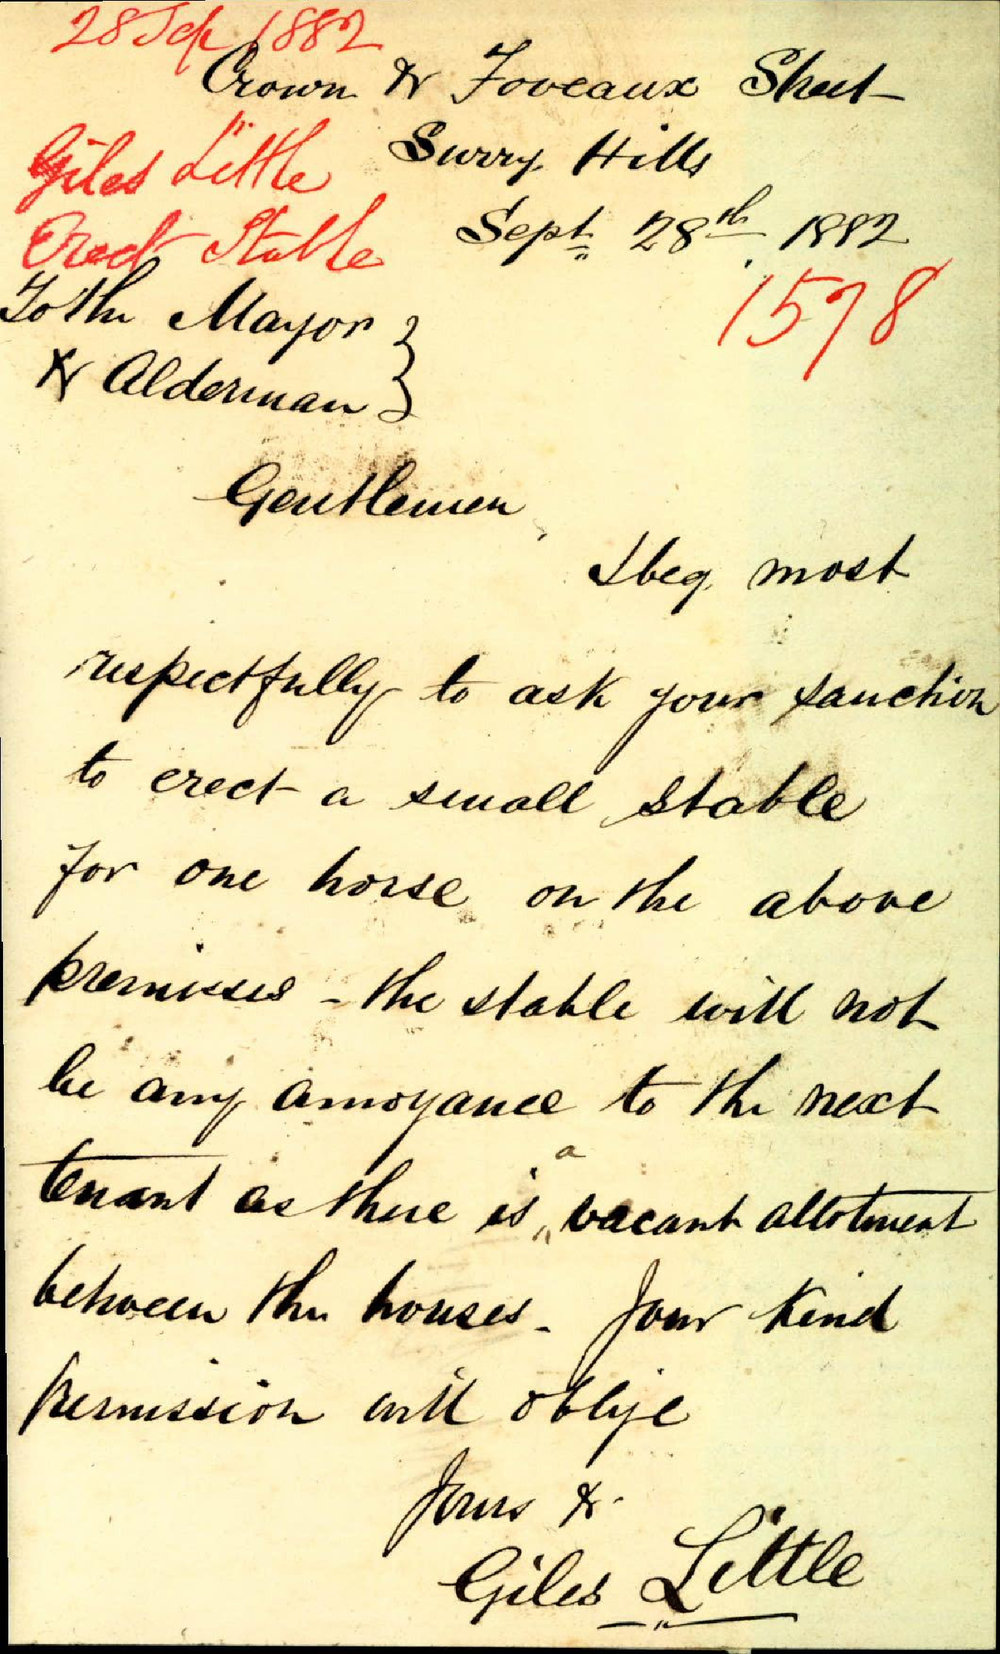 28 Sep 1882
Crown & Foveaux Street
Giles Little
Surry Hills
Erect Stable
Sept. 28th. 1882
1578
To the Mayor
& Alderman
Gentlemen,
I beg most
respectfully to ask your sanction
to erect a small stable
for one horse on the above
premisses - the stable will not
be any annoyance to the next
tenant as there is a vacant allotment
between the houses - Your kind
permission will oblige
Yours &.
Giles Little